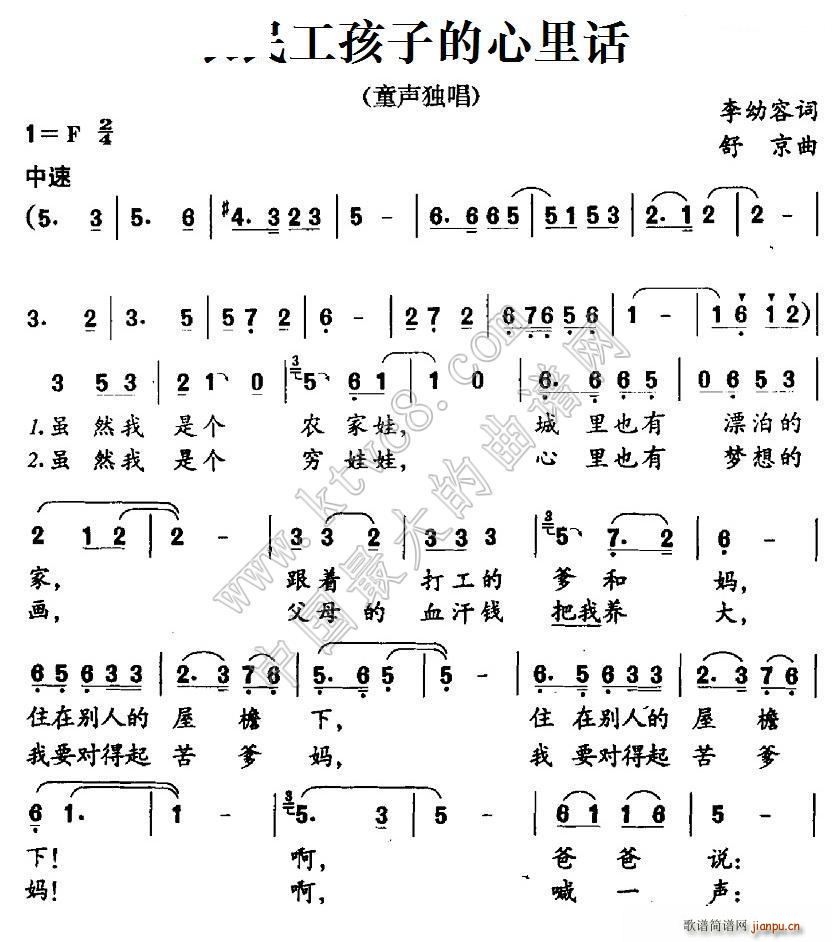 民工孩子的心里话
(童声独唱)
1=F 2/4
李幼容词
舒 京曲
中速
(5. 3 | 5. 6 | #4. 3 2 3 | 5 - | 6. 6 6 5 | 5 1 5 3 | 2. 1 2 | 2 - |
3. 2 | 3. 5 | 5 7 2 | 6 - | 2 7 2 | 6 7 6 5 6 | 1 - | 1 6 1 2) |
3 5 3 | 2 1 0 | 5 6 1 | 1 0 | 6. 6 6 5 | 0 6 5 3 |
1.虽 然我 是个 农 家娃, 城 里也有 漂泊的
2.虽 然我 是个 穷 娃娃, 心 里也有 梦想的
2 1 2 | 2 - | 3 3 2 | 3 3 3 | 5 7. 2 | 6 - |
家, 跟着 打工的 爹 和 妈,
画, 父母的 血汗钱 把我养 大,
6 5 6 3 3 | 2. 3 7 6 | 5. 6 5 | 5 - | 6. 5 6 3 3 | 2. 3 7 6 |
住在别人的 屋 檐 下, 住 在别人的 屋 檐
我要对得起 苦 爹 妈, 我 要对得起 苦 爹
6 1. | 1 - | 5. 3 | 5 - | 6 1 1 6 | 5. 3 |
下! 啊, 爸 爸 说:
妈! 啊, 喊 一 声:
www.ktvc8.com
中国最大的曲谱网
歌谱简谱网
jianpu.cn